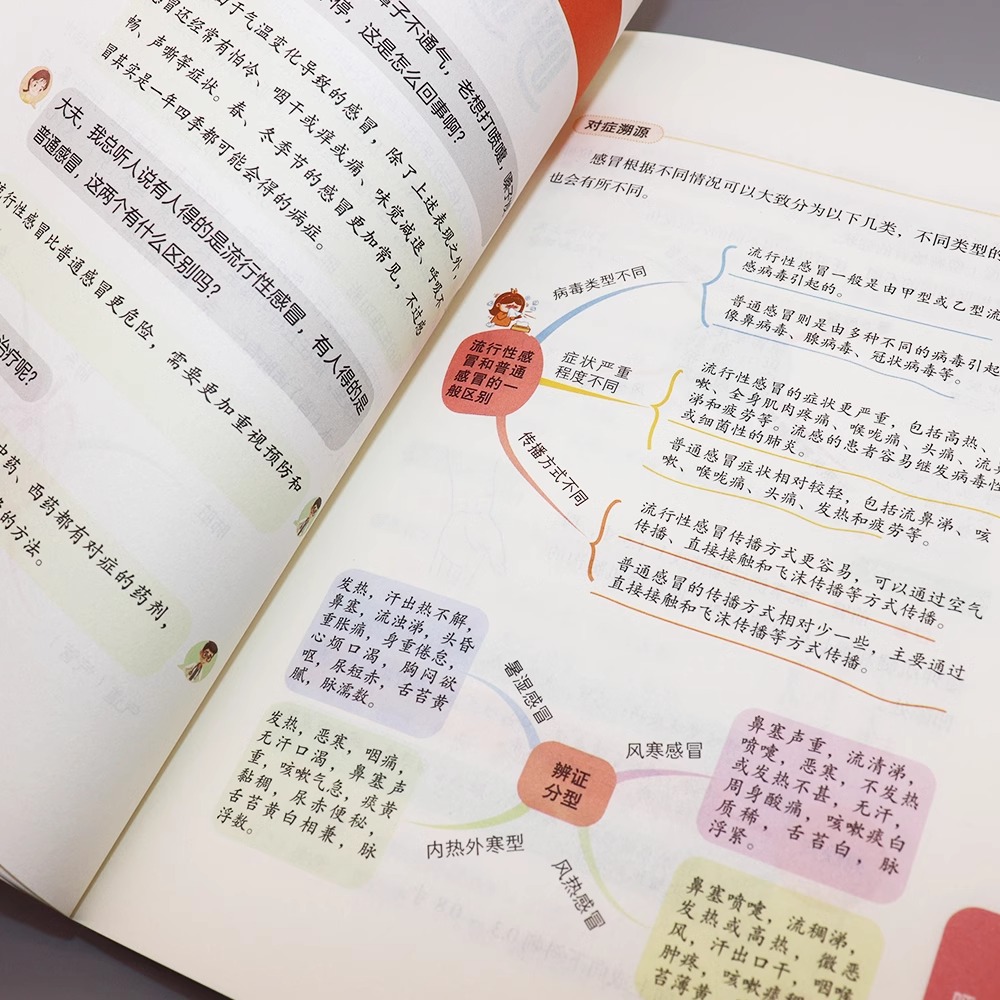 鼻子不通气，老想打喷嚏，嗓子
停，这是怎么回事啊？
由于气温变化导致的感冒，除了上述表现之外，
感冒还经常有怕冷、咽干或痒或痛、味觉减退、呼吸不
畅、声嘶等症状。春、冬季节的感冒更加常见，不过感
冒其实是一年四季都可能会得的病症。
大夫，我总听人说有人得的是流行性感冒，有人得的是
普通感冒，这两个有什么区别吗？
流行性感冒比普通感冒更危险，需要更加重视预防和
治疗呢？
中药、西药都有对症的药剂，
的方法。
对症溯源
感冒根据不同情况可以大致分为以下几类，不同类型的
也会有所不同。
流行性感
冒和普通
感冒的一
般区别
病毒类型不同
流行性感冒一般是由甲型或乙型流
感病毒引起的。
普通感冒则是由多种不同的病毒引起
像鼻病毒、腺病毒、冠状病毒等。
症状严重
程度不同
流行性感冒的症状更严重，包括高热、
嗽、全身肌肉疼痛、喉咙痛、头痛、流鼻
涕和疲劳等。流感的患者容易继发病毒性
或细菌性的肺炎。
普通感冒症状相对较轻，包括流鼻涕、咳
嗽、喉咙痛、头痛、发热和疲劳等。
传播方式不同
流行性感冒传播方式更容易，可以通过空气
传播、直接接触和飞沫传播等方式传播。
普通感冒的传播方式相对少一些，主要通过
直接接触和飞沫传播等方式传播。
辨证
分型
暑湿感冒
发热，汗出热不解，
鼻塞，流浊涕，头昏
重胀痛，身重倦怠，
心烦口渴，胸闷欲
呕，尿短赤，舌苔黄
腻，脉濡数。
内热外寒型
发热，恶寒，咽痛，
无汗口渴，鼻塞声
重，咳嗽气急，痰黄
黏稠，尿赤便秘，
舌苔黄白相兼，脉
浮数。
风寒感冒
鼻塞声重，流清涕，
喷嚏，恶寒，不发热
或发热不甚，无汗，
周身酸痛，咳嗽痰白
质稀，舌苔白，脉
浮紧。
风热感冒
鼻塞喷嚏，流稠涕，
发热或高热，微恶
风，汗出口干，咽喉
肿疼，咳嗽痰稠
苔薄黄